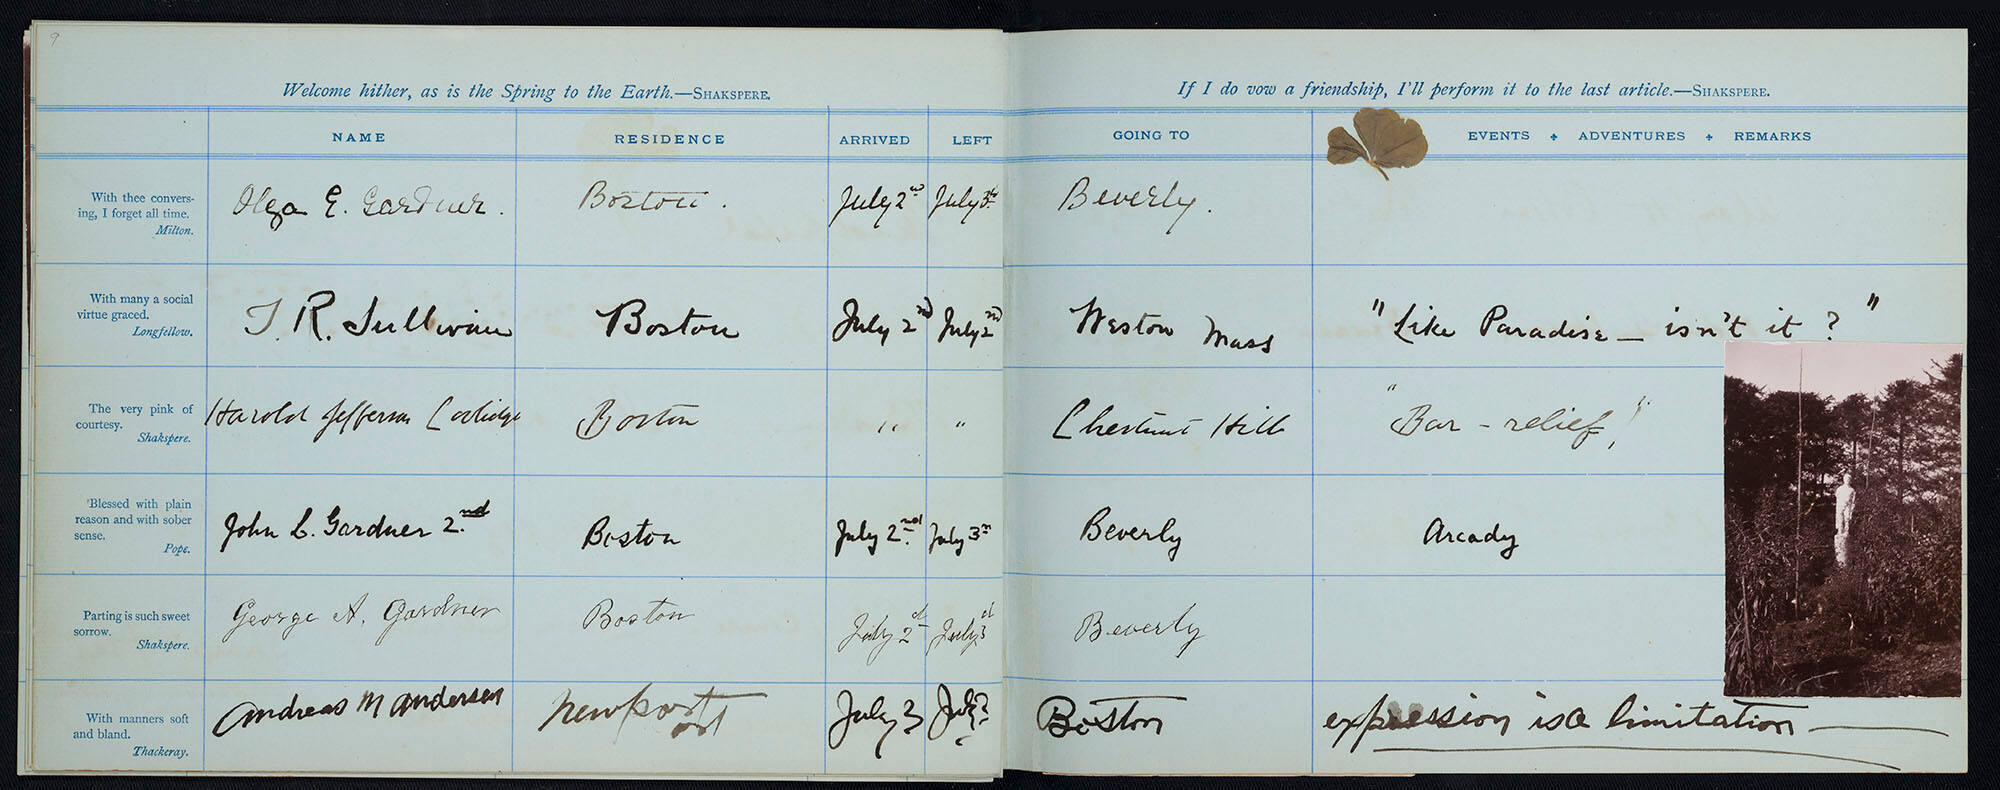 9
Welcome hither, as is the Spring to the Earth.—SHAKSPERE.
If I do vow a friendship, I'll perform it to the last article.—SHAKSPERE.
NAME RESIDENCE ARRIVED LEFT GOING TO EVENTS + ADVENTURES + REMARKS
With thee convers-
ing, I forget all time.
Milton.
Olga E. Gardner. Boston. July 2nd July 3rd Beverly.
With many a social
virtue graced.
Longfellow.
T. R. Sullivan Boston July 2nd July 2nd Weston Mass "Like Paradise — isn't it?"
The very pink of
courtesy.
Shakspere.
Harold Jefferson Coolidge Boston " " Chestnut Hill "Bas-relief!"
Blessed with plain
reason and with sober
sense.
Pope.
John L. Gardner 2nd Boston July 2nd July 3rd Beverly Arcady
Parting is such sweet
sorrow.
Shakspere.
George A. Gardner Boston July 2d July 3d Beverly
With manners soft
and bland.
Thackeray.
Andreas M Andersen Newport July 3 July Boston expression is a limitation —